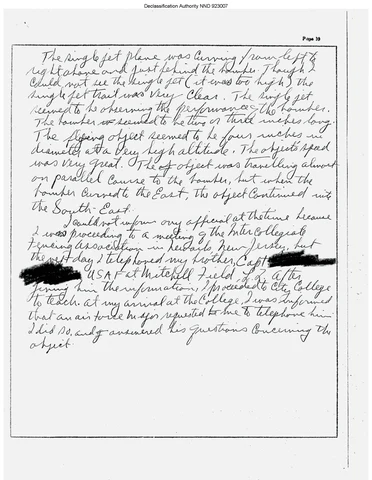 Declassification Authority NND 923007
Page 39
The single jet plane was curving from left to
right above and just behind the bomber. Though I
could not see the single jet (it was too high) the
single jet trail was very clear. The single jet
seemed to be observing the performance of the bomber.
The bomber seemed to be two or three inches long.
The flying object seemed to be four inches in
diameter at a very high altitude. The objects speed
was very great. The object was travelling almost
on parallel course to the bomber, but when the
bomber curved to the East, the object continued into
the South-East.
I could not inform any official at the time because
I was proceeding to a meeting of the InterCollegiate
Fencing Association in New Jersey, but
the next day I telephoned my brother, Capt
USAF at Mitchell Field, After
giving him the information, I proceeded to City College
to teach. At my arrival at the College, I was informed
that an air force major requested me to telephone him
I did so, and answered his questions concerning the
object